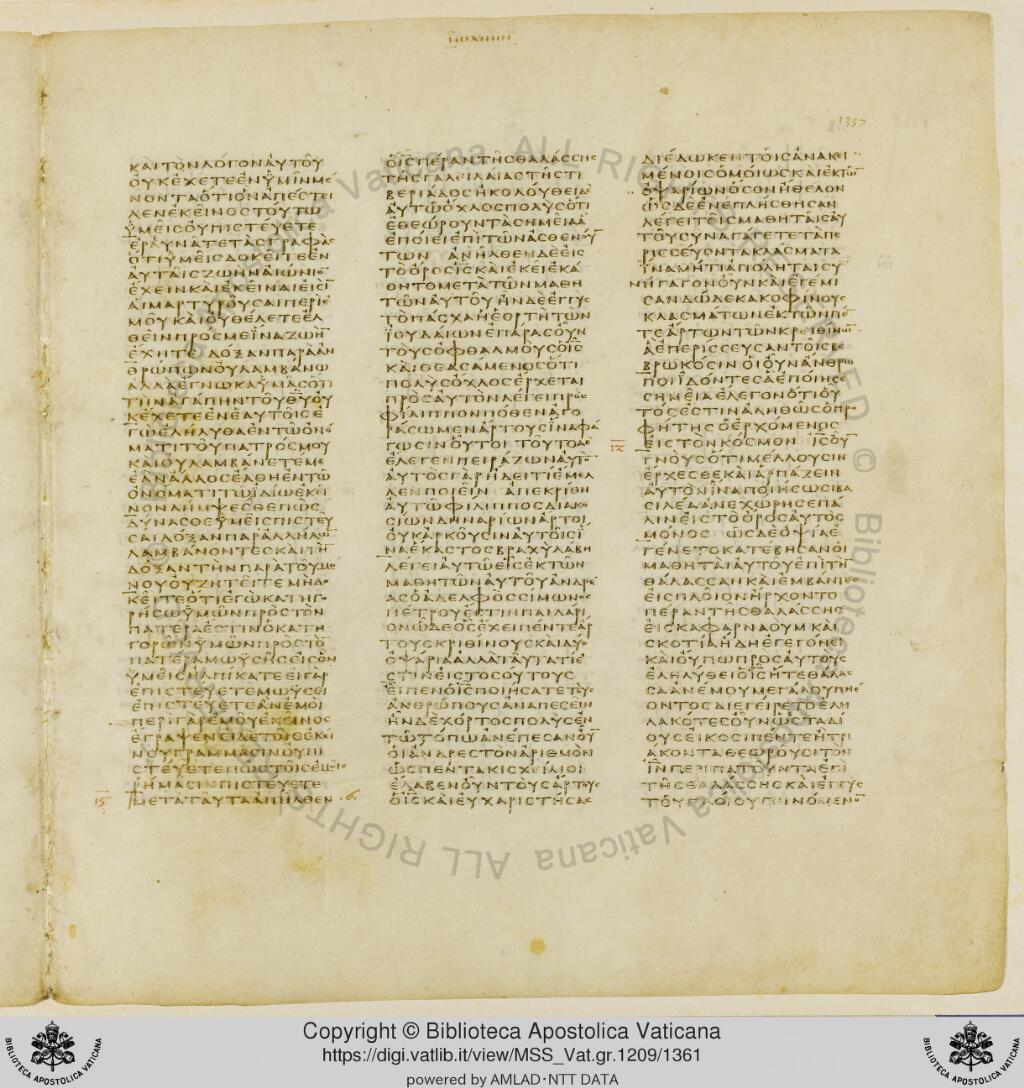 ΙΩΑΝΗΝ
1357
ΚΑΙΤΟΝΛΟΓΟΝΑΥΤΟΥ
ΟΥΚΕΧΕΤΕΕΝΥΜΙΝΜΕ
ΝΟΝΤΑΟΤΙΟΝΑΠΕΣΤΕΙ
ΛΕΝΕΚΕΙΝΟΣΤΟΥΤΩ
ΥΜΕΙΣΟΥΠΙΣΤΕΥΕΤΕ
ΕΡΑΥΝΑΤΕΤΑΣΓΡΑΦΑΣ
ΟΤΙΥΜΕΙΣΔΟΚΕΙΤΕΕΝ
ΑΥΤΑΙΣΖΩΗΝΑΙΩΝΙΟ̅
ΕΧΕΙΝΚΑΙΕΚΕΙΝΑΙΕΙΣΙ̅
ΑΙΜΑΡΤΥΡΟΥΣΑΙΠΕΡΙΕ
ΜΟΥΚΑΙΟΥΘΕΛΕΤΕΕΛ
ΘΕΙΝΠΡΟΣΜΕΙΝΑΖΩΗ̅
ΕΧΗΤΕ ΔΟΞΑΝΠΑΡΑΑΝ
ΘΡΩΠΩΝΟΥΛΑΜΒΑΝΩ
ΑΛΛΑΕΓΝΩΚΑΥΜΑΣΟΤΙ
ΤΗΝΑΓΑΠΗΝΤΟΥΘ̅Υ̅ΟΥ
ΚΕΧΕΤΕΕΝΕΑΥΤΟΙΣΕ
ΓΩΕΛΗΛΥΘΑΕΝΤΩΟΝΟ
ΜΑΤΙΤΟΥΠΑΤΡΟΣΜΟΥ
ΚΑΙΟΥΛΑΜΒΑΝΕΤΕΜΕ
ΕΑΝΑΛΛΟΣΕΛΘΗΕΝΤΩ
ΟΝΟΜΑΤΙΤΩΙΔΙΩΕΚΕΙ
ΝΟΝΛΗΜΨΕΣΘΕΠΩΣ
ΔΥΝΑΣΘΕΥΜΕΙΣΠΙΣΤΕΥ
ΣΑΙΔΟΞΑΝΠΑΡΑΛΛΗΛΩ̅
ΛΑΜΒΑΝΟΝΤΕΣΚΑΙΤΗ̅
ΔΟΞΑΝΤΗΝΠΑΡΑΤΟΥΜΟ
ΝΟΥΟΥΖΗΤΕΙΤΕΜΗΔΟ
ΚΕΙΤΕΟΤΙΕΓΩΚΑΤΗΓΟ
ΡΗΣΩΥΜΩΝΠΡΟΣΤΟΝ
ΠΑΤΕΡΑΕΣΤΙΝΟΚΑΤΗ
ΓΟΡΩΝΥΜΩΝΠΡΟΣΤΟ̅
ΠΑΤΕΡΑΜΩΥΣΗΣΕΙΣΟΝ
ΥΜΕΙΣΗΛΠΙΚΑΤΕΕΙΓΑΡ
ΕΠΙΣΤΕΥΕΤΕΜΩΥΣΕΙ
ΕΠΙΣΤΕΥΕΤΕΑΝΕΜΟΙ
ΠΕΡΙΓΑΡΕΜΟΥΕΚΕΙΝΟΣ
ΕΓΡΑΨΕΝΕΙΔΕΤΟΙΣΕΚΕΙ
ΝΟΥΓΡΑΜΜΑΣΙΝΟΥΠΙ
ΣΤΕΥΕΤΕΠΩΣΤΟΙΣΕΜΟΙΣ
ΡΗΜΑΣΙΝΠΙΣΤΕΥΕΤΕ
ΜΕΤΑΤΑΥΤΑΑΠΗΛΘΕΝ
ΟΙΣΠΕΡΑΝΤΗΣΘΑΛΑΣΣΗΣ
ΤΗΣΓΑΛΕΙΛΑΙΑΣΤΗΣΤΙ
ΒΕΡΙΑΔΟΣΗΚΟΛΟΥΘΕΙΔΕ
ΑΥΤΩΟΧΛΟΣΠΟΛΥΣΟΤΙ
ΕΘΕΩΡΟΥΝΤΑΣΗΜΕΙΑΑ
ΕΠΟΙΕΙΕΠΙΤΩΝΑΣΘΕΝΟΥ̅
ΤΩΝ ΑΝΗΛΘΕΝΔΕΕΙΣ
ΤΟΟΡΟΣΙ̅Σ̅ΚΑΙΕΚΕΙΕΚΑ
ΘΗΤΟΜΕΤΑΤΩΝΜΑΘΗ
ΤΩΝΑΥΤΟΥΗΝΔΕΕΓΓΥΣ
ΤΟΠΑΣΧΑΗΕΟΡΤΗΤΩΝ
ΙΟΥΔΑΙΩΝΕΠΑΡΑΣΟΥΝ
ΤΟΥΣΟΦΘΑΛΜΟΥΣΟΙ̅Σ̅
ΚΑΙΘΕΑΣΑΜΕΝΟΣΟΤΙ
ΠΟΛΥΣΟΧΛΟΣΕΡΧΕΤΑΙ
ΠΡΟΣΑΥΤΟΝΛΕΓΕΙΠΡΟΣ
ΦΙΛΙΠΠΟΝΠΟΘΕΝΑΓΟ
ΡΑΣΩΜΕΝΑΡΤΟΥΣΙΝΑΦΑ
ΓΩΣΙΝΟΥΤΟΙ ΤΟΥΤΟΔΕ
ΕΛΕΓΕΝΠΕΙΡΑΖΩΝΑΥΤΟ̅
ΑΥΤΟΣΓΑΡΗΔΕΙΤΙΕΜΕΛ
ΛΕΝΠΟΙΕΙΝ ΑΠΕΚΡΙΘΗ
ΑΥΤΩΦΙΛΙΠΠΟΣΔΙΑΚΟ
ΣΙΩΝΔΗΝΑΡΙΩΝΑΡΤΟΙ
ΟΥΚΑΡΚΟΥΣΙΝΑΥΤΟΙΣΙ
ΝΑΕΚΑΣΤΟΣΒΡΑΧΥΛΑΒΗ
ΛΕΓΕΙΑΥΤΩΕΙΣΕΚΤΩΝ
ΜΑΘΗΤΩΝΑΥΤΟΥΑΝΔΡΕ
ΑΣΟΑΔΕΛΦΟΣΣΙΜΩΝΟΣ
ΠΕΤΡΟΥΕΣΤΙΝΠΑΙΔΑΡΙ
ΟΝΩΔΕΟΣΕΧΕΙΠΕΝΤΕΑΡ
ΤΟΥΣΚΡΙΘΙΝΟΥΣΚΑΙΔΥΟ
ΟΨΑΡΙΑΑΛΛΑΤΑΥΤΑΤΙΕ
ΣΤΙΝΕΙΣΤΟΣΟΥΤΟΥΣ
ΕΙΠΕΝΟΙ̅Σ̅ΠΟΙΗΣΑΤΕΤΟΥΣ
ΑΝΘΡΩΠΟΥΣΑΝΑΠΕΣΕΙΝ
ΗΝΔΕΧΟΡΤΟΣΠΟΛΥΣΕΝ
ΤΩΤΟΠΩΑΝΕΠΕΣΑΝΟΥ̅
ΟΙΑΝΔΡΕΣΤΟΝΑΡΙΘΜΟΝ
ΩΣΠΕΝΤΑΚΙΣΧΕΙΛΙΟΙ
ΕΛΑΒΕΝΟΥΝΤΟΥΣΑΡΤΟΥΣ
ΟΙ̅Σ̅ΚΑΙΕΥΧΑΡΙΣΤΗΣΑΣ
ΔΙΕΔΩΚΕΝΤΟΙΣΑΝΑΚΕΙ
ΜΕΝΟΙΣΟΜΟΙΩΣΚΑΙΕΚΤΩ̅
ΟΨΑΡΙΩΝΟΣΟΝΗΘΕΛΟΝ
ΩΣΔΕΕΝΕΠΛΗΣΘΗΣΑΝ
ΛΕΓΕΙΤΟΙΣΜΑΘΗΤΑΙΣΑΥ
ΤΟΥΣΥΝΑΓΑΓΕΤΕΤΑΠΕ
ΡΙΣΣΕΥΟΝΤΑΚΛΑΣΜΑΤΑ
ΙΝΑΜΗΤΙΑΠΟΛΗΤΑΙΣΥ
ΝΗΓΑΓΟΝΟΥΝΚΑΙΕΓΕΜΙ
ΣΑΝΔΩΔΕΚΑΚΟΦΙΝΟΥΣ
ΚΛΑΣΜΑΤΩΝΕΚΤΩΝΠΕ̅
ΤΕΑΡΤΩΝΤΩΝΚΡΕΙΘΙΝΩ̅
ΑΕΠΕΡΙΣΣΕΥΣΑΝΤΟΙΣΒΕ
ΒΡΩΚΟΣΙΝΟΙΟΥΝΑΝΘΡΩ
ΠΟΙΙΔΟΝΤΕΣΑΕΠΟΙΗΣΕ
ΣΗΜΕΙΑΕΛΕΓΟΝΟΤΙΟΥ
ΤΟΣΕΣΤΙΝΑΛΗΘΩΣΟΠΡΟ
ΦΗΤΗΣΟΕΡΧΟΜΕΝΟΣ
ΕΙΣΤΟΝΚΟΣΜΟΝ Ι̅Σ̅ΟΥ̅
ΓΝΟΥΣΟΤΙΜΕΛΛΟΥΣΙΝ
ΕΡΧΕΣΘΕΚΑΙΑΡΠΑΖΕΙΝ
ΑΥΤΟΝΙΝΑΠΟΙΗΣΩΣΙΒΑ
ΣΙΛΕΑΑΝΕΧΩΡΗΣΕΠΑ
ΛΙΝΕΙΣΤΟΟΡΟΣΑΥΤΟΣ
ΜΟΝΟΣ ΩΣΔΕΟΨΙΑΕ
ΓΕΝΕΤΟΚΑΤΕΒΗΣΑΝΟΙ
ΜΑΘΗΤΑΙΑΥΤΟΥΕΠΙΤΗ̅
ΘΑΛΑΣΣΑΝΚΑΙΕΜΒΑΝΤΕΣ
ΕΙΣΠΛΟΙΟΝΗΡΧΟΝΤΟ
ΠΕΡΑΝΤΗΣΘΑΛΑΣΣΗΣ
ΕΙΣΚΑΦΑΡΝΑΟΥΜΚΑΙ
ΣΚΟΤΙΑΗΔΗΕΓΕΓΟΝΕΙ
ΚΑΙΟΥΠΩΠΡΟΣΑΥΤΟΥΣ
ΕΛΗΛΥΘΕΙΟΙ̅Σ̅ΗΤΕΘΑΛΑΣ
ΣΑΑΝΕΜΟΥΜΕΓΑΛΟΥΠΝΕ
ΟΝΤΟΣΔΙΕΓΕΙΡΕΤΟΕΛΗ
ΛΑΚΟΤΕΣΟΥΝΩΣΣΤΑΔΙ
ΟΥΣΕΙΚΟΣΙΠΕΝΤΕΗΤΡΙ
ΑΚΟΝΤΑΘΕΩΡΟΥΣΙΤΟΝ
Ι̅Ν̅ΠΕΡΙΠΑΤΟΥΝΤΑΕΠΙ
ΤΗΣΘΑΛΑΣΣΗΣΚΑΙΕΓΓΥΣ
ΤΟΥΠΛΟΙΟΥΓΕΙΝΟΜΕΝΟ̅
BIBLIOTECA APOSTOLICA VATICANA
Copyright © Biblioteca Apostolica Vaticana
https://digi.vatlib.it/view/MSS_Vat.gr.1209/1361
powered by AMLAD·NTT DATA
BIBLIOTECA APOSTOLICA VATICANA